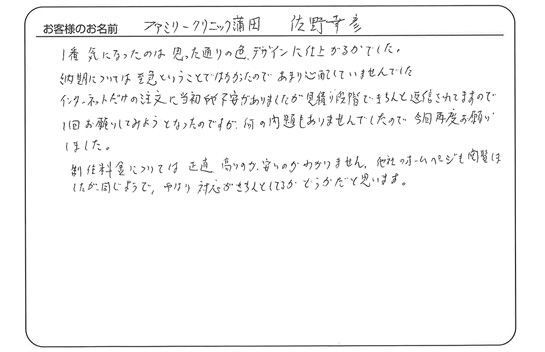 お客様のお名前 ファミリークリニック蒲田 佐野幸彦
1番 気になったのは 思った通りの色、デザインに仕上がるかでした。
納期については 至急ということではなかったので あまり心配していませんでした
インターネットだけの注文に当初は不安がありましたが 見積り段階できちんと返信されてますので
1回お願いしてみようとなったのですが、何の問題もありませんでしたので 今回再度お願い
しました。
制作料金については 正直 高いのか、安いのか わかりません、他社のホームページも閲覧は
したが同じようで、やはり 対応がきちんとしてるか どうかだと思います。